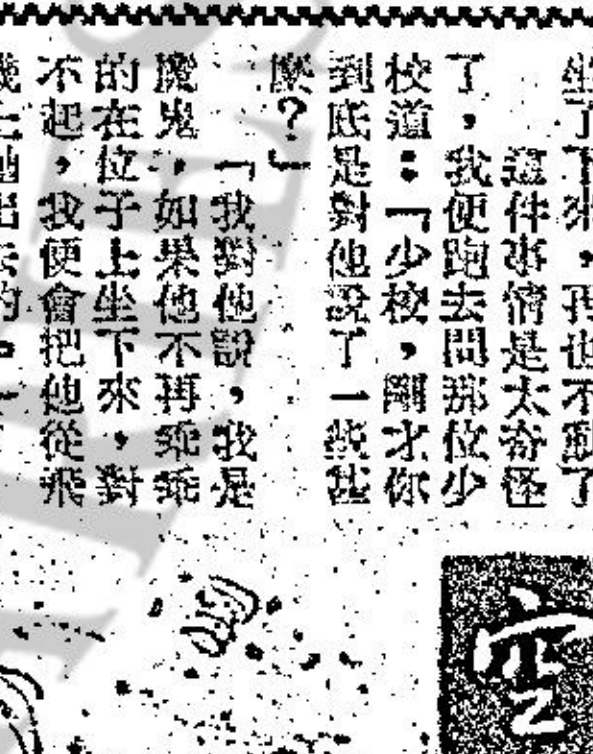 坐了下來，再也不動了
這件事情是太奇怪
了，我便跑去問那位少
校道：「少校，剛才你
到底是對他說了一些甚
麼？」
「我對他說，我是
魔鬼，如果他不再乖乖
的在位子上坐下來，對
不起，我便會把他從飛
機上拋出去的。」
空